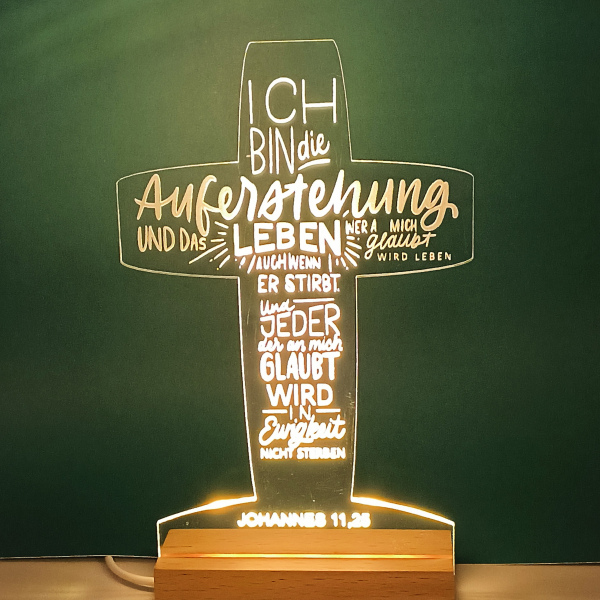 ICH
BIN die
Auferstehung
UND DAS LEBEN, WER A MICH
glaubt
WIRD LEBEN
AUCH WENN
ER STIRBT.
Und
JEDER
der an mich
GLAUBT
WIRD
IN
Ewigkeit
NICHT STERBEN
JOHANNES 11,25